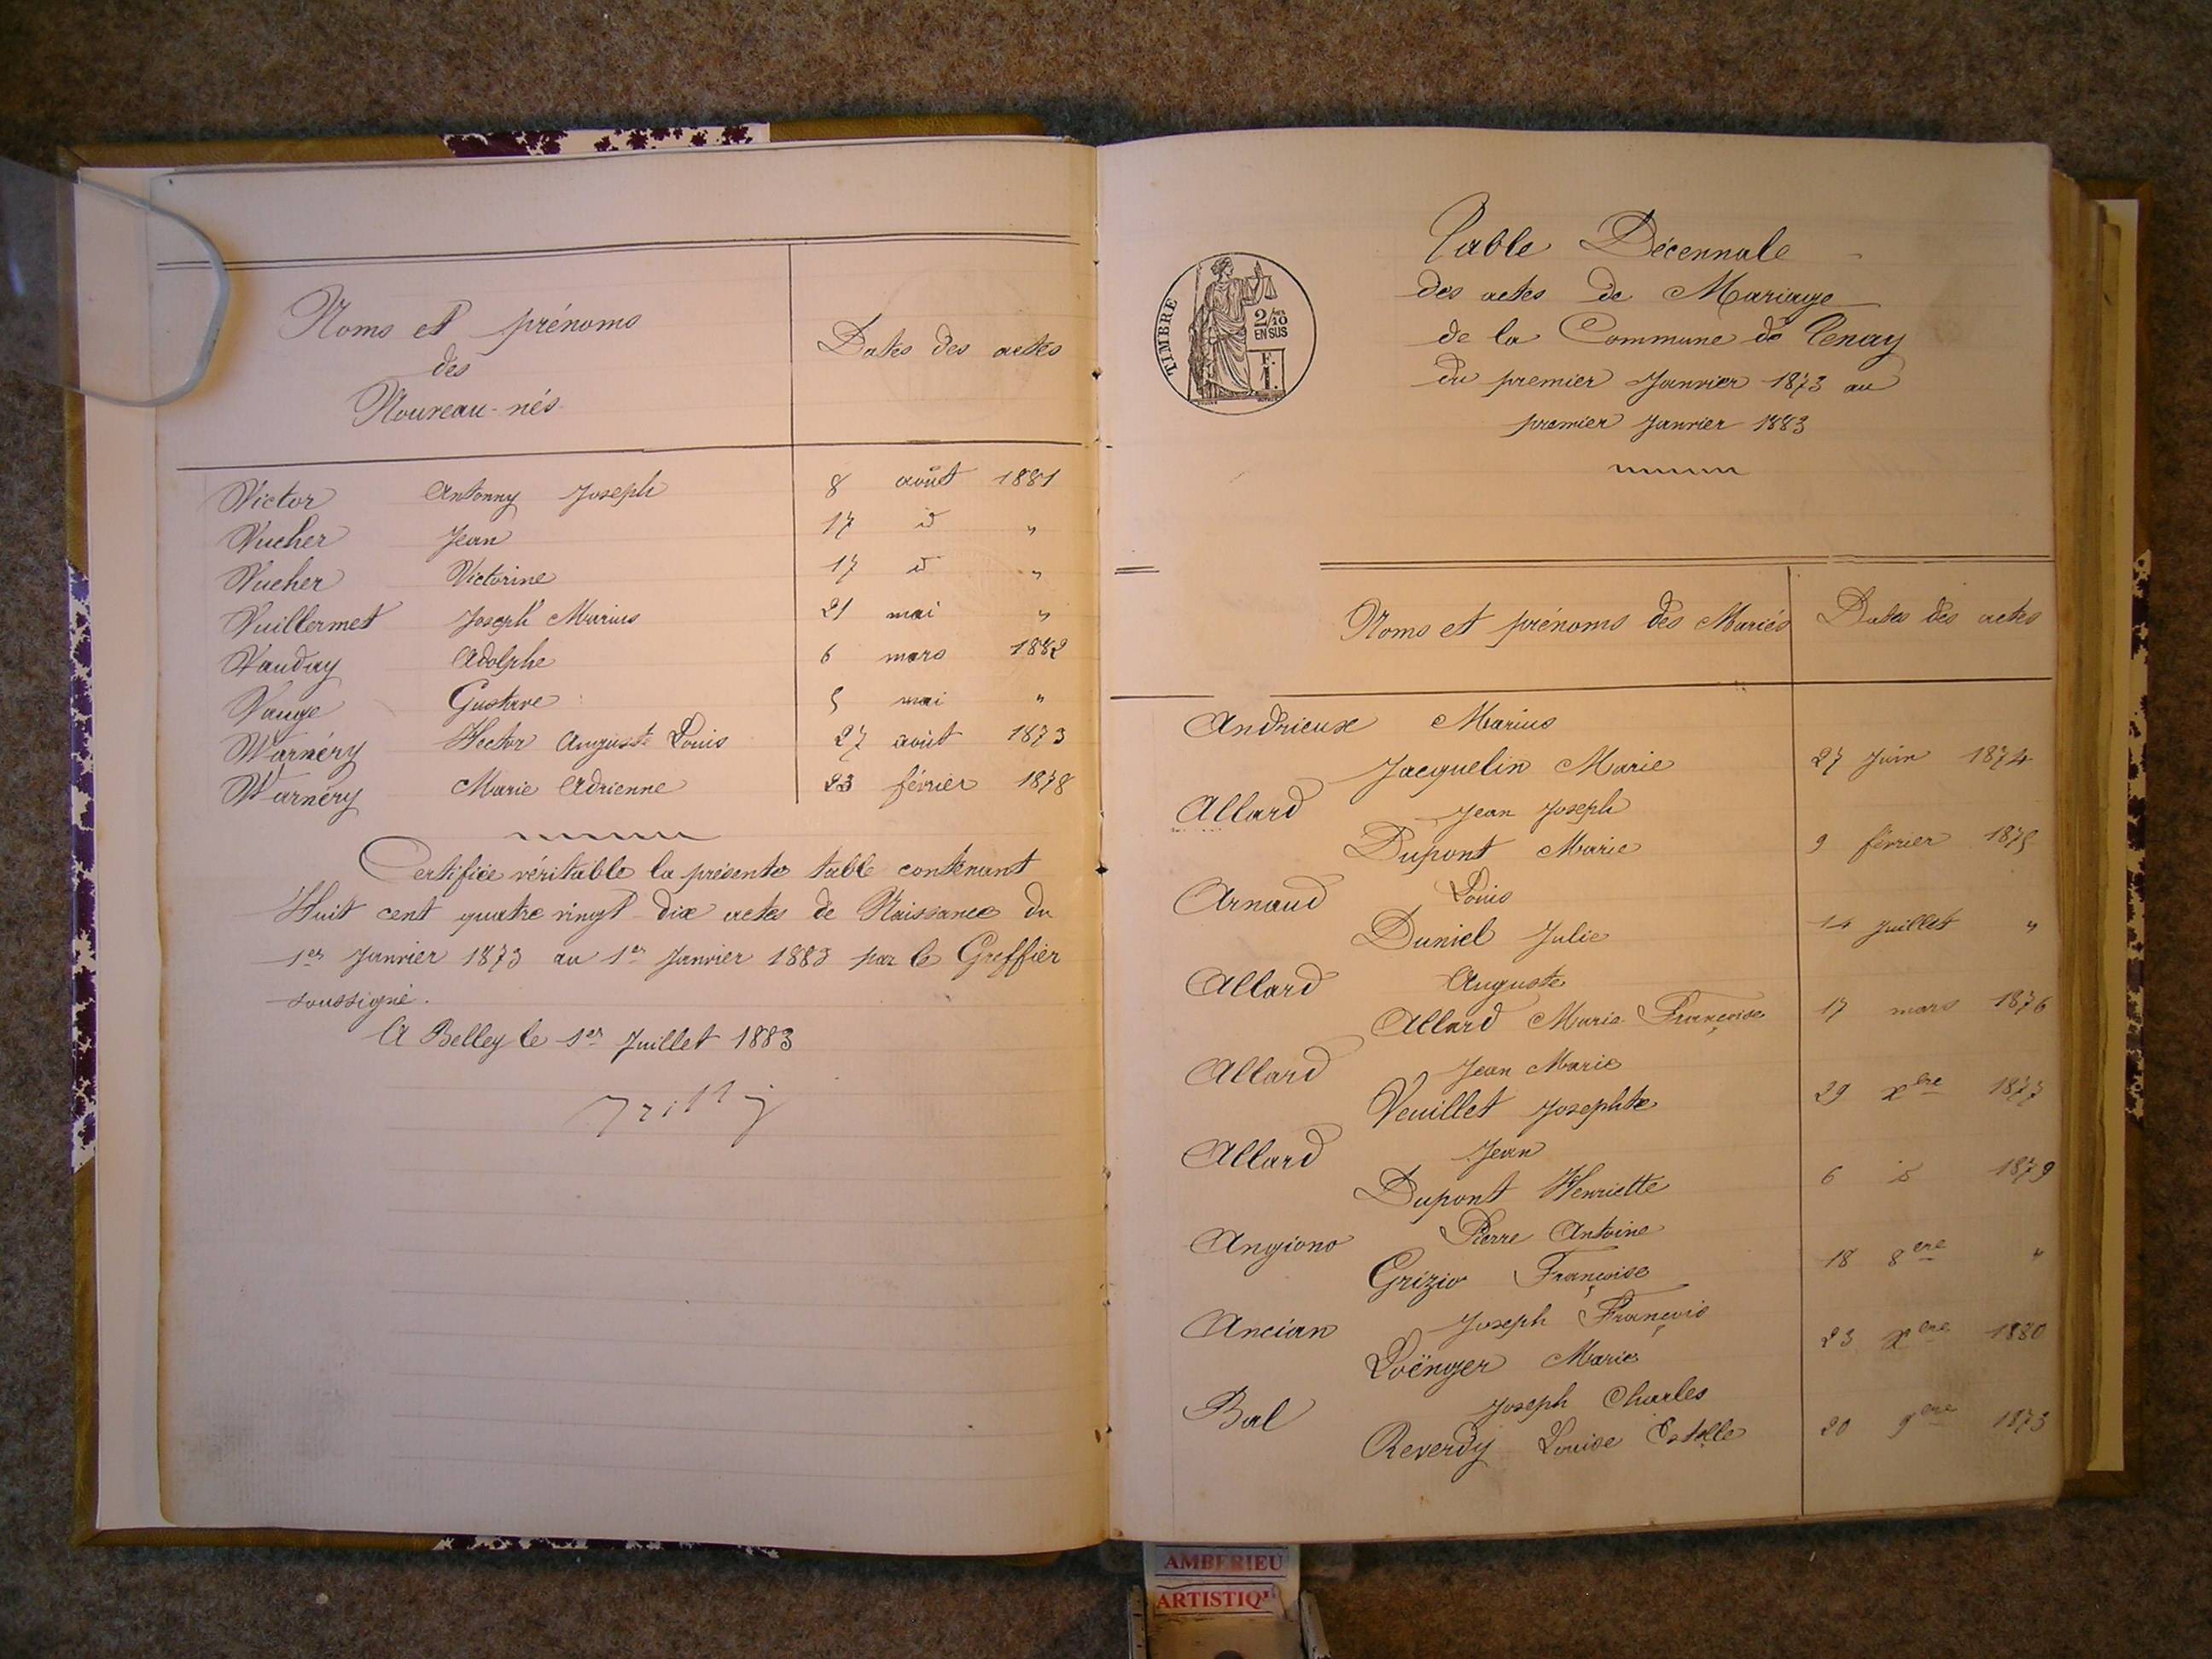 Noms et prénoms
des
Nouveau-nés
Dates des actes
Victor Antonny Joseph 8 août 1881
Vucher Jean 17 d "
Vucher Victorine 17 d "
Vuillermet Joseph Marius 21 mai "
Vauday Adolphe 6 mars 1882
Vauge Gustave 5 mai "
Warnéry Hector Auguste Louis 27 août 1873
Warnéry Marie Adrienne 23 février 1878
Certifiée véritable la présente table contenant
Huit cent quatre vingt dix actes de Naissance du
1er Janvier 1873 au 1er Janvier 1883 par le Greffier
soussigné.
A Belley le 1er Juillet 1883
TIMBRE
2/10
EN SUS
F.
1.
Table Décennale
des actes de Mariage
de la Commune de Tenay
du premier Janvier 1873 au
premier Janvier 1883
Noms et prénoms des Mariés Dates des actes
Andrieux Marius
Jacquelin Marie 27 Juin 1874
Allard Jean Joseph
Dupont Marie 9 février 1875
Arnaud Louis
Duniel Julie 14 Juillet "
Allard Auguste
Allard Marie Françoise 17 mars 1876
Allard Jean Marie
Veuillet Josephte 29 xbre 1877
Allard Jean
Dupont Henriette 6 d 1879
Angiono Pierre Antoine
Grizio Françoise 18 8bre "
Ancian Joseph François
Loënger Marie 23 xbre 1880
Bal Joseph Charles
Reverdy Louise Estelle 20 9bre 1873
AMBERIEU
ARTISTIQ